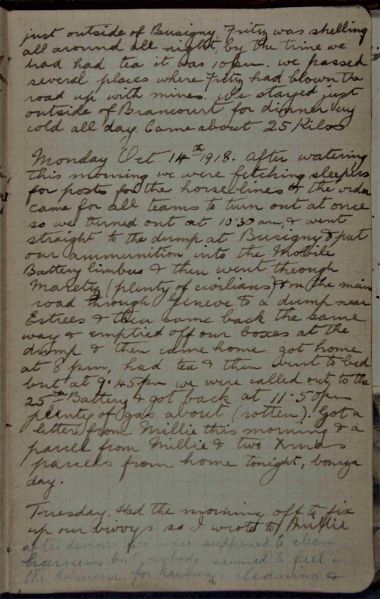 just outside of Busigny. Fritz was shelling
all around all night, by the time we
had had tea it was 10pm. we passed
several places where Fritz had blown the
road up with mines. We stayed just
outside of Brancourt for dinner very
cold all day. Came about 25 Kilos
Monday Oct 14th 1918. After watering
this morning we were fetching sleepers
for posts for the horse lines & the order
came for all teams to turn out at once
so we turned out at 10.30 am & went
straight to the dump at Busigny & put
our ammunition into the Mobile
Battery limbers & then went through
Maretz (plenty of civilians) & on the main
road through Geneve to a dump near
Estrees & then came back the same
way & emptied off our boxes at the
dump & then came home. got home
at 8 pm, had tea & then went to bed
but at 9.45pm we were called out to the
25th Battery & got back at 11.50pm
plenty of gas about (rotten). Got a
letter from Millie this morning & a
parcel from Millie & two Xmas
parcels from home tonight, bonza
day.
Tuesday. Had the morning off to fix
up our bivvys so I wrote to Millie
after dinner we were supposed to clean
harness but nobody seemed to feel in
the humour for harness cleaning &